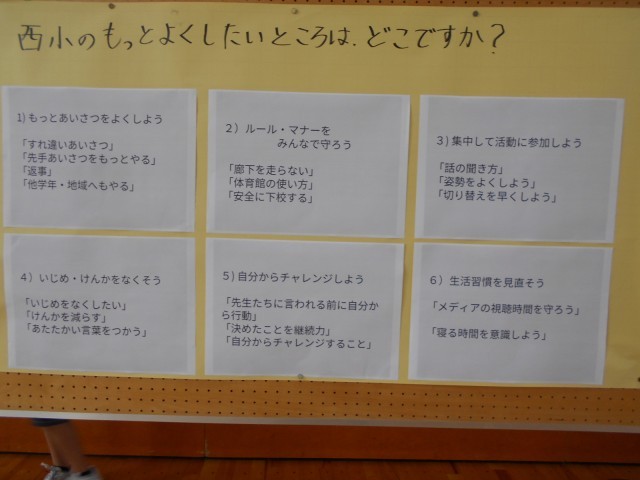 西小のもっとよくしたいところは、どこですか？
1)もっとあいさつをよくしよう
「すれ違いあいさつ」
「先手あいさつをもっとやる」
「返事」
「他学年・地域へもやる」
２）ルール・マナーを
みんなで守ろう
「廊下を走らない」
「体育館の使い方」
「安全に下校する」
３)集中して活動に参加しよう
「話の聞き方」
「姿勢をよくしよう」
「切り替えを早くしよう」
４）いじめ・けんかをなくそう
「いじめをなくしたい」
「けんかを減らす」
「あたたかい言葉をつかう」
５)自分からチャレンジしよう
「先生たちに言われる前に自分か
ら行動」
「決めたことを継続力」
「自分からチャレンジすること」
６）生活習慣を見直そう
「メディアの視聴時間を守ろう」
「寝る時間を意識しよう」